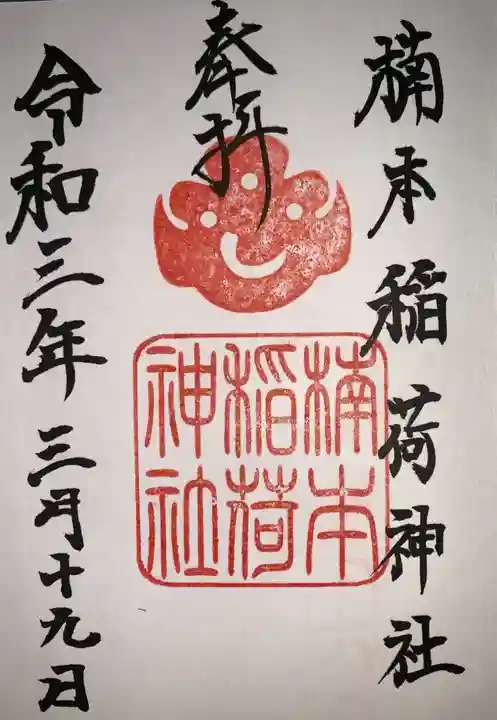 楠本稲荷神社
奉拝
楠本
稲荷
神社
令和三年三月十九日